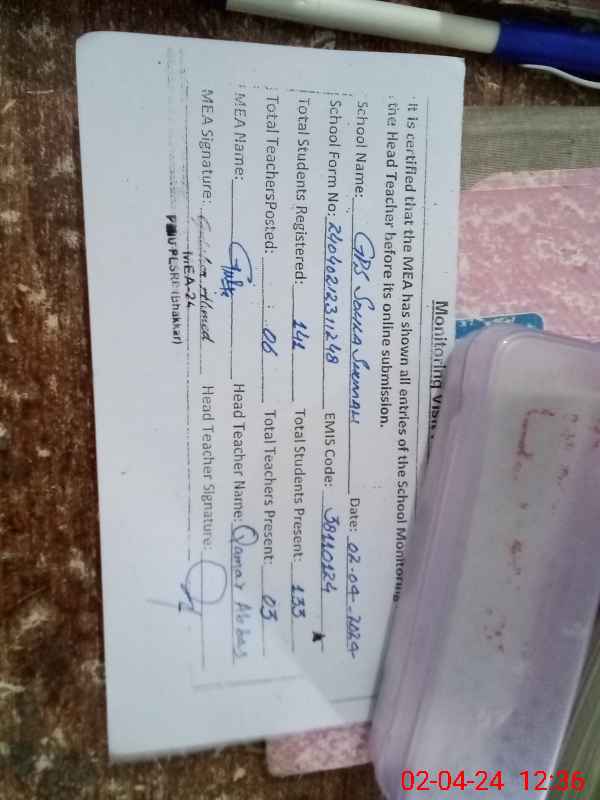 Monitoring Visit
It is certified that the MEA has shown all entries of the School Monitoring
the Head Teacher before its online submission.
School Name: GPS Date: 02-04-2024
School Form No: 24040212311248 EMIS Code: 38110124
Total Students Registered: 141 Total Students Present: 133
Total TeachersPosted: 06 Total Teachers Present: 03
MEA Name: Head Teacher Name: Qamar Abbas
MEA Signature: Ahmed Head Teacher Signature:
MEA-24
(Bhakkar)
02-04-24 12:36